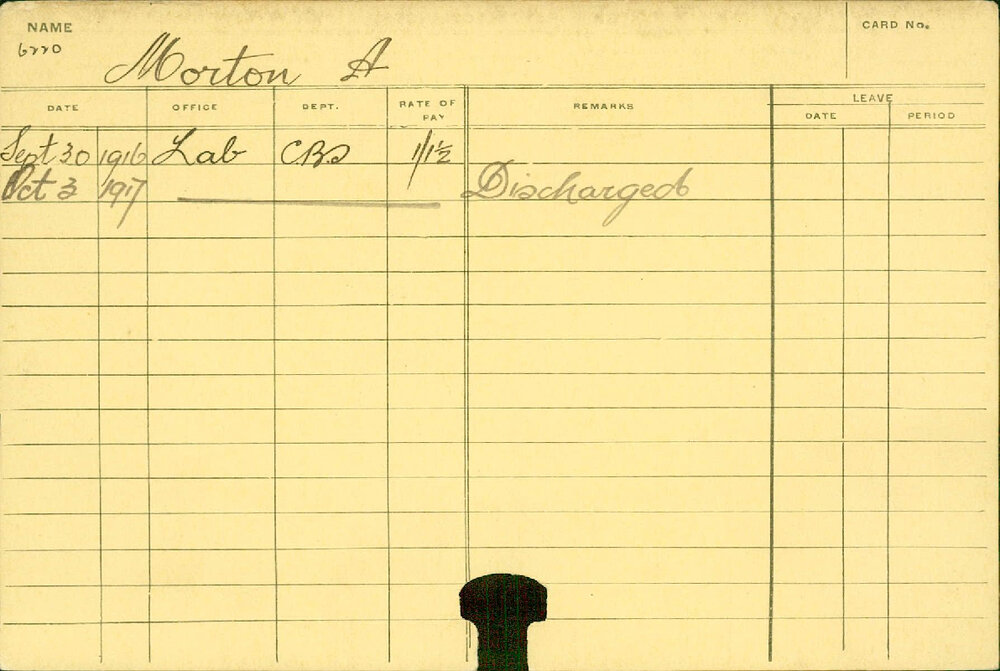 NAME
CARD No.
6220
Morton A
DATE OFFICE DEPT. RATE OF PAY REMARKS LEAVE
DATE PERIOD
Sept 30 1916 Lab CBD 1/1½
Oct 3 1917 Discharged